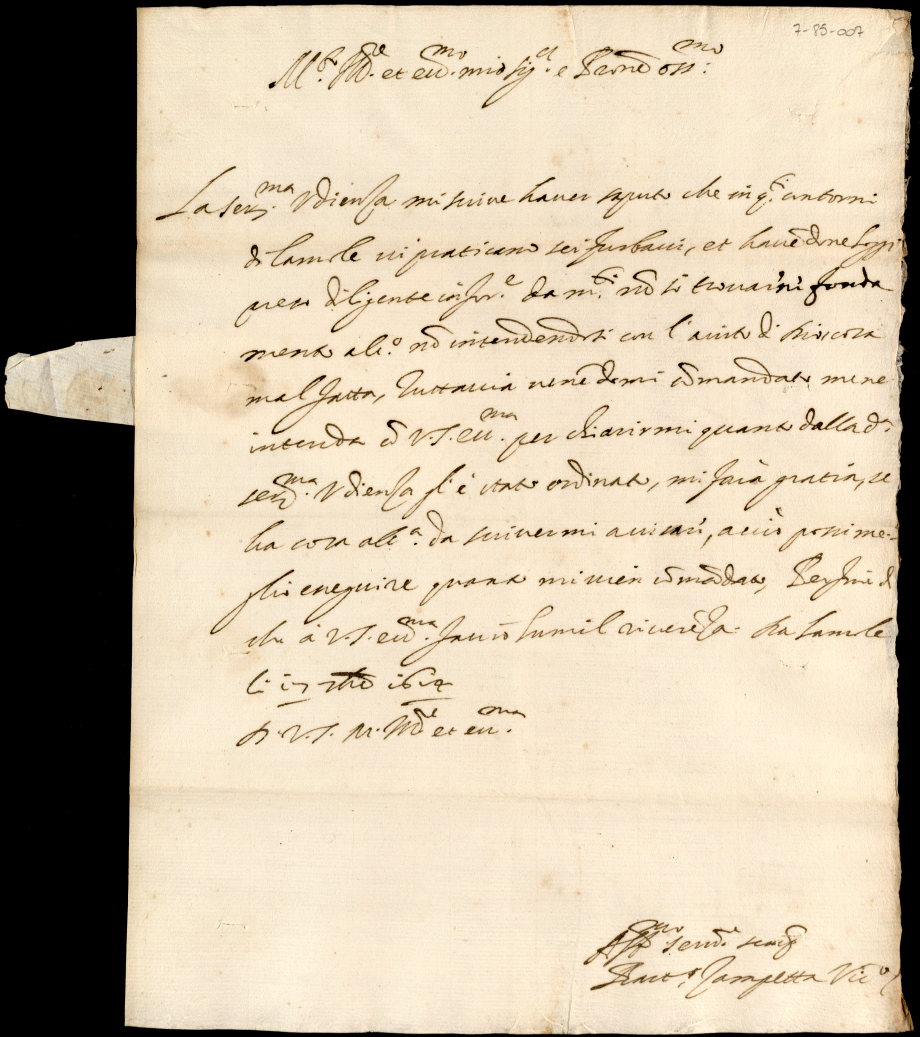 7-85-007
M.to Ill.re et ecc.mo mio sig.r e Prone oss.mo
La ser.ma Udienza mi scrive haver saputo che in q.ti contorni
di lamole vi praticano sei furbacci, et havẽdone hoggi
preso diligente infor.e da m.ti nõ si trova fonda
mento alc.o nõ intendendosi con l'aiuto di Dio cosa
mal fatta, Tuttavia venẽdomi cõmandato mene
intenda cõ V.S. ecc.ma per chiarirmi quanto dalla d.a
ser.ma Udienza gli è stato ordinato, mi farà gratia, se
ha cosa alc.a da scrivermi avisar, acciò possi me-
glio eseguire quanto mi vien cõmãdato, Per fine di
che à V.S. ecc.ma faccio humil riverẽza. Da lamole
li
D. V.S. M. Ill.re et ecc.ma
Aff.mo serv.e
Zampetta Vic.o